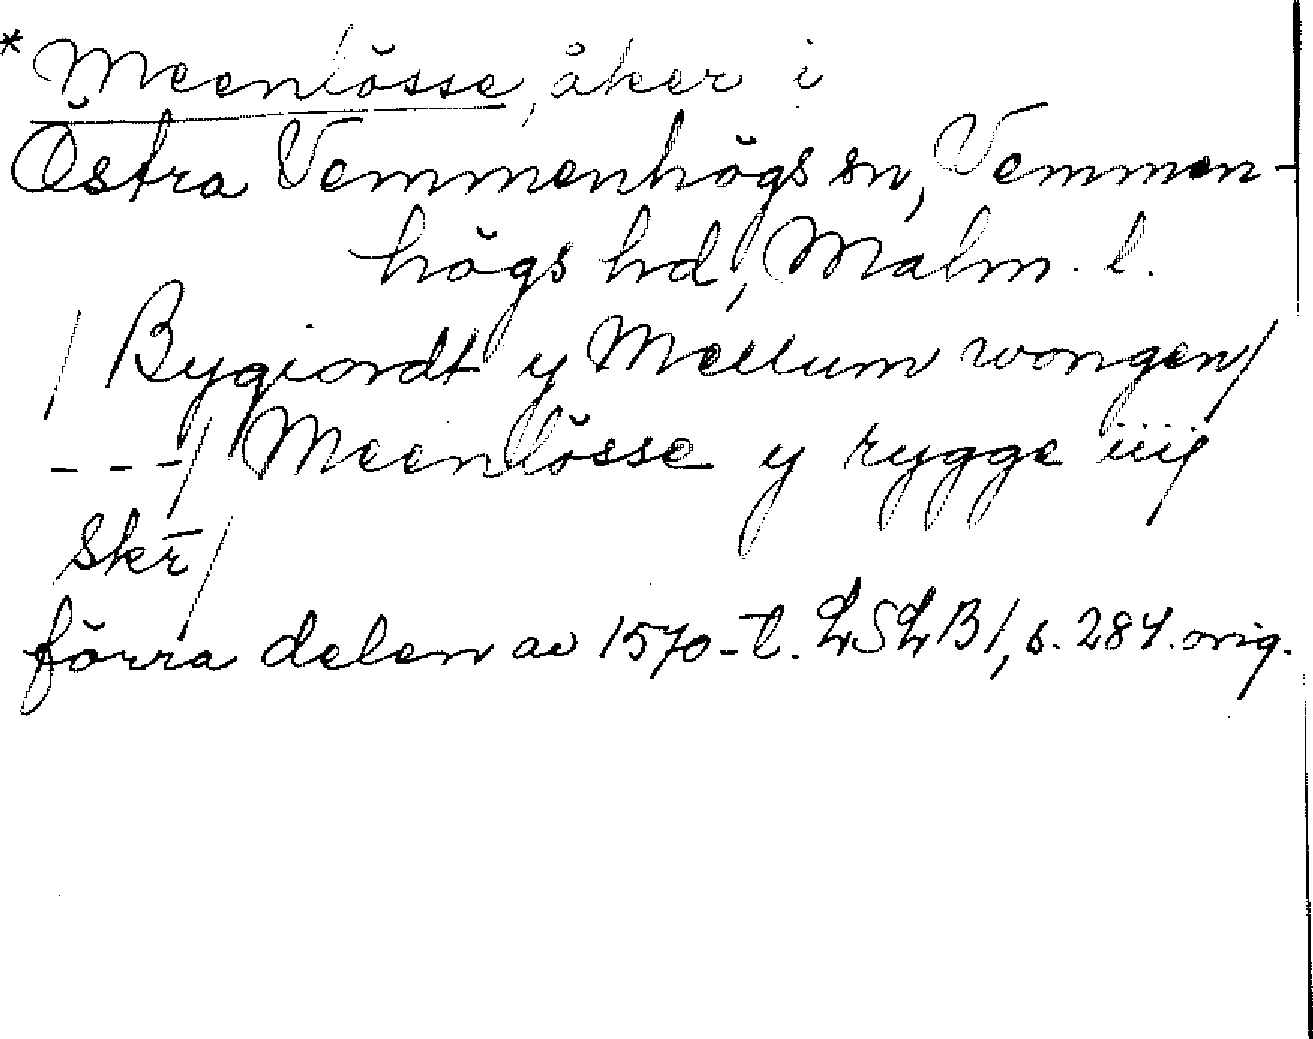 * Meenlösse, åker i
Östra Vemmenhögs sn, Vemmen-
högs hd, Malm. l.
/ Bygiordt y Mellum wongen/
- - -/ Meenlösse y rygge iiij
Skr̄/
förra delen av 1570-t. LSLB1, s. 284. orig.